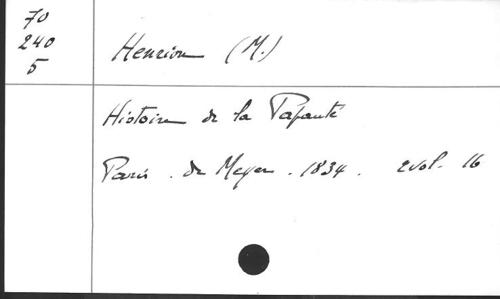 70
240
5
Henrion (M.)
Histoire de la Papauté
Paris. de Meyer. 1834. 2 vol. 16